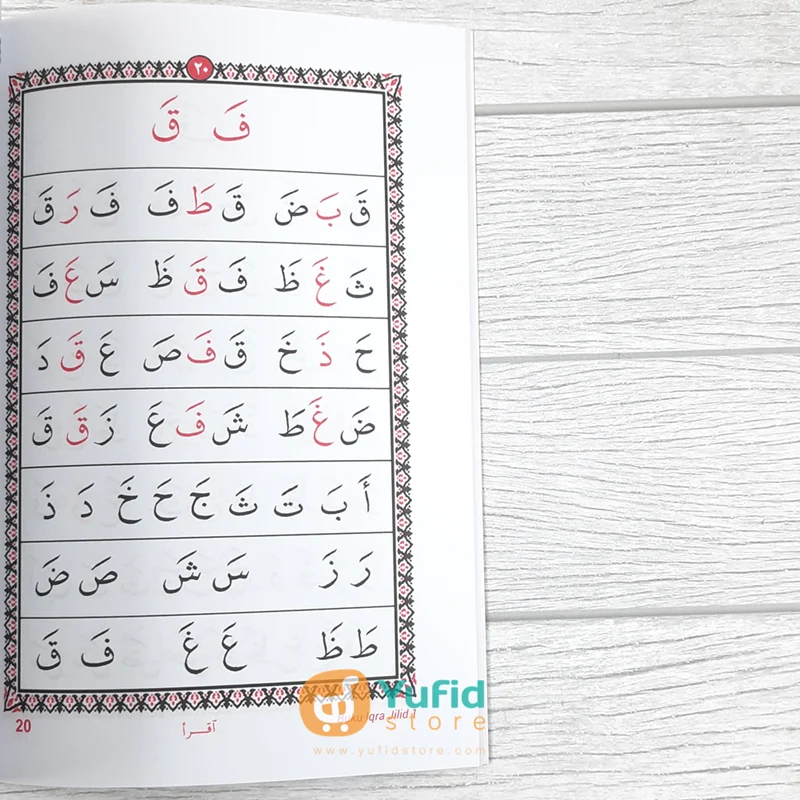 ٢٠
فَ قَ
قَ بَ ضَ قَ طَ فَ فَ رَ قَ
ثَ غَ ظَ فَ قَ ظَ سَ غَ فَ
حَ ذَ خَ قَ فَ صَ غَ قَ دَ
ضَ غَ طَ شَ فَ غَ زَ قَ قَ
أَ بَ تَ ثَ جَ حَ خَ دَ ذَ
رَ زَ سَ شَ صَ ضَ
طَ ظَ عَ غَ فَ قَ
20 اقرأ Buku Iqra Jilid 1
Yufid
store
www.yufidstore.com